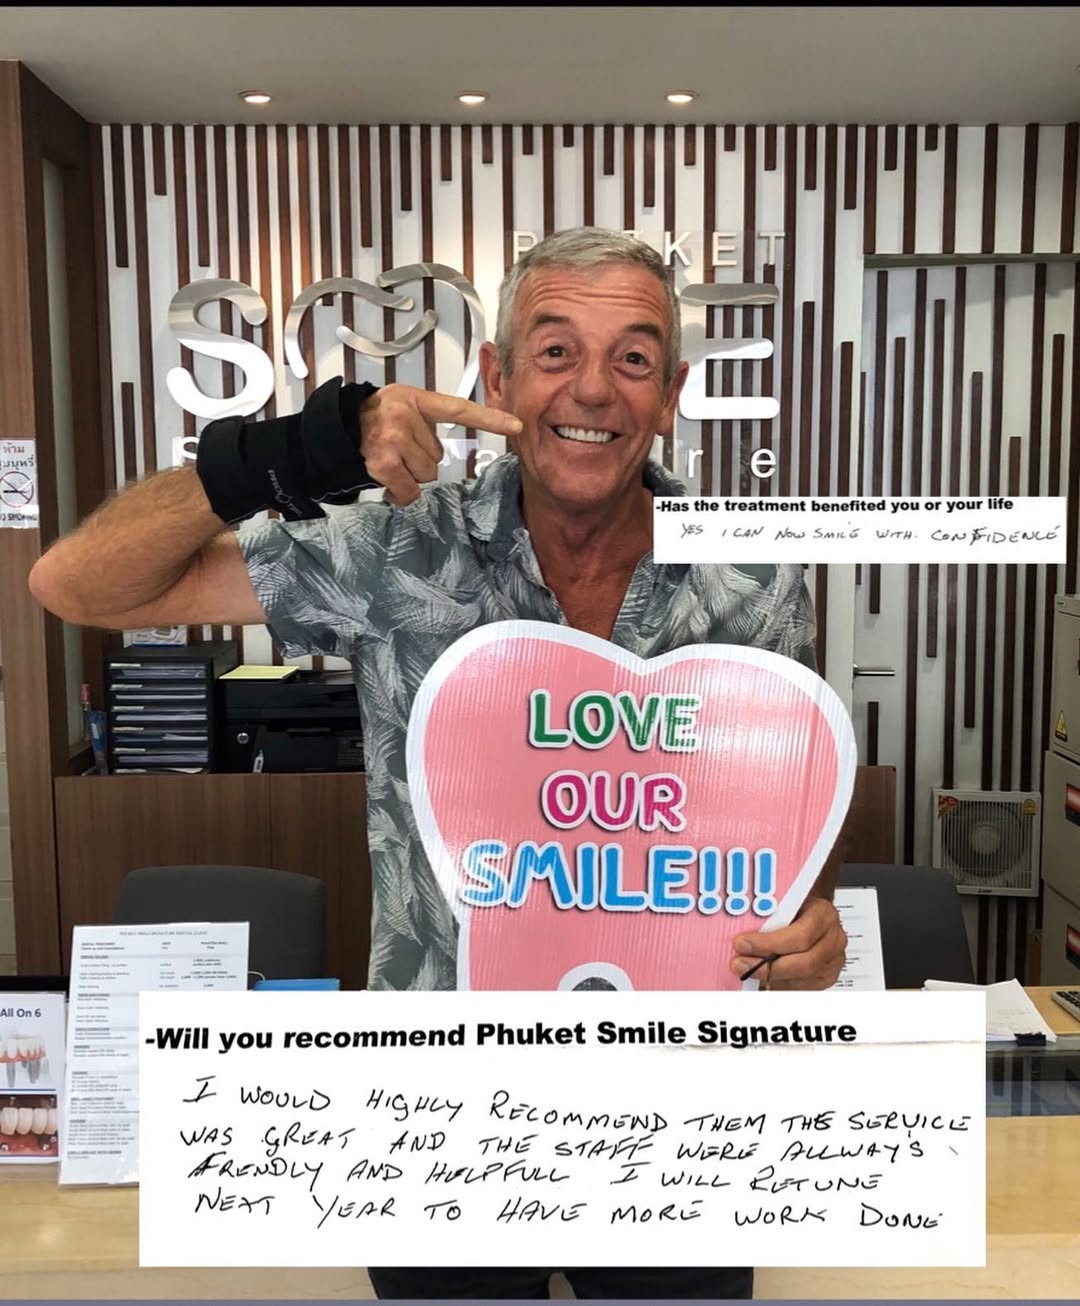 P KET
SM E
re
ห้าม
-Has the treatment benefited you or your life
YES I CAN NOW SMILE WITH. CONFIDENCE
LOVE
OUR
SMILE!!!
All On 6
PHUKET SMILE SIGNATURE DENTAL CLINIC
-Will you recommend Phuket Smile Signature
I WOULD HIGHLY RECOMMEND THEM THE SERVICE
WAS GREAT AND THE STAFF WERE ALLWAYS
FRENDLY AND HELPFULL I WILL RETUNE
NEXT YEAR TO HAVE MORE WORK DONE